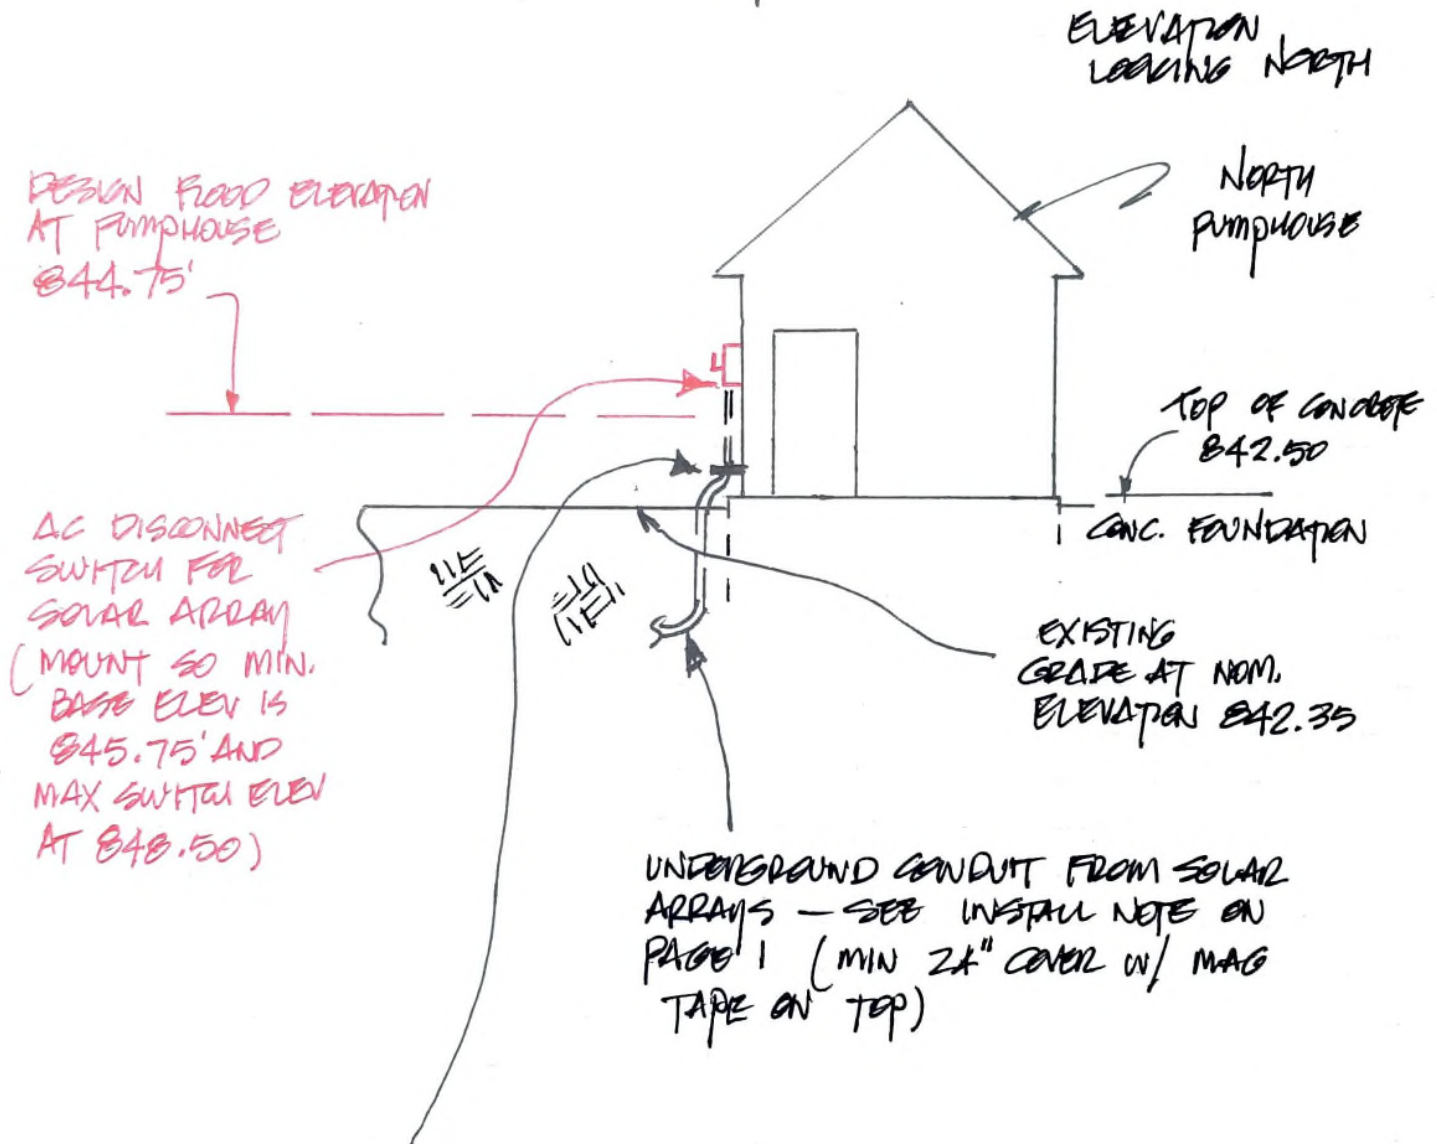 ELEVATION
LOOKING NORTH
DESIGN FLOOD ELEVATION
AT PUMPHOUSE
844.75'
NORTH
PUMPHOUSE
TOP OF CONCRETE
842.50
CONC. FOUNDATION
AC DISCONNECT
SWITCH FOR
SOLAR ARRAY
(MOUNT SO MIN.
BASE ELEV IS
845.75' AND
MAX SWITCH ELEV
AT 848.50)
EXISTING
GRADE AT NOM.
ELEVATION 842.35
UNDERGROUND CONDUIT FROM SOLAR
ARRAYS — SEE INSTALL NOTE ON
PAGE 1 (MIN 24" COVER W/ MAG
TAPE ON TOP)